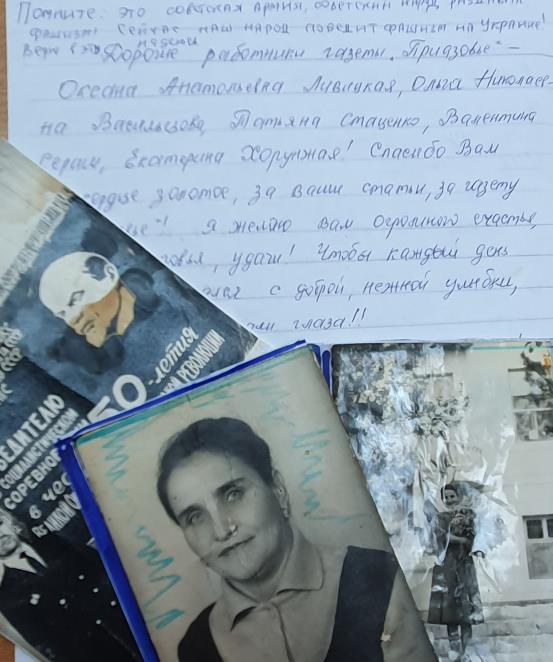 Помните: это советская Армия, советский народ
фашизм! Сейчас наш народ победит фашизм на Украине!
Верю в это
Дорогие работники газеты „Приазовье" –
Оксана Анатольевна Ливицкая, Ольга Николаев-
на Васильцова, Татьяна Стаценко, Валентина
Екатерина Хорунжая! Спасибо Вам
сердце золотое, за ваши статьи, за газету
ье"! Я желаю вам огромного счастья,
овья, удачи! Чтобы каждый день
ался с доброй, нежной улыбки,
глаза!!!
50-летия
РЕВОЛЮЦИИ
БЕДИТЕЛЮ
СОЦИАЛИСТИЧЕСКОМ
СОРЕВНОВ
В ЧЕС